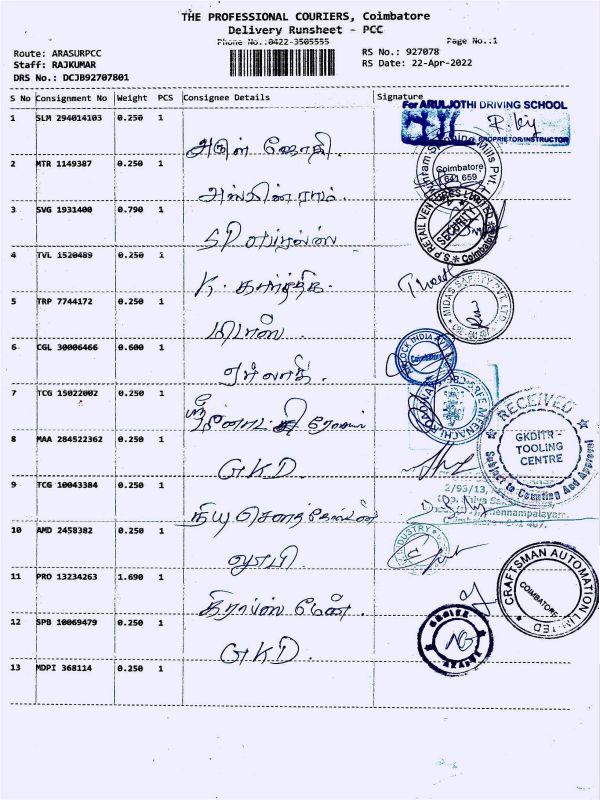 THE PROFESSIONAL COURIERS, Coimbatore
Delivery Runsheet - PCC
Phone No.:0422-3505555
Page No.:1
Route: ARASURPCC
RS No.: 927078
Staff: RAJKUMAR
RS Date: 22-Apr-2022
DRS No.: DCJB92707801
S No Consignment No Weight PCS Consignee Details Signature
For ARULJOTHI DRIVING SCHOOL
1 SLM 294014103 0.250 1
PROPRIETOR/INSTRUCTOR
அருள் ஜோதி.
2 MTR 1149387 0.250 1
Coimbatore
641 659
3 SVG 1931400 0.790 1
S.P. RETAIL VENTURES LIMITED
SECURITY
Coimbatore
SP
4 TVL 1520489 0.250 1
K. கார்த்திக.
5 TRP 7744172 0.250 1
MIDAS SAFETY PVT. LTD.
மிடாஸ்.
6 CGL 30006466 0.600 1
INDIA
Coimbatore
7 TCG 15022002 0.250 1
MEENACHI ROAD
RECEIVED
GKDITR -
TOOLING
CENTRE
Subject to Counting And Approval
8 MAA 284522362 0.250 1
GKD.
9 TCG 10043384 0.250 1
2/93/13,
Coimbatore - 641 407.
நியு
10 AMD 2458382 0.250 1
INDUSTRY
11 PRO 13234263 1.690 1
CRAFTSMAN AUTOMATION LIMITED
COIMBATORE
கிராப்ஸ் மேன்.
12 SPB 10069479 0.250 1
GKD.
13 MDPI 368114 0.250 1